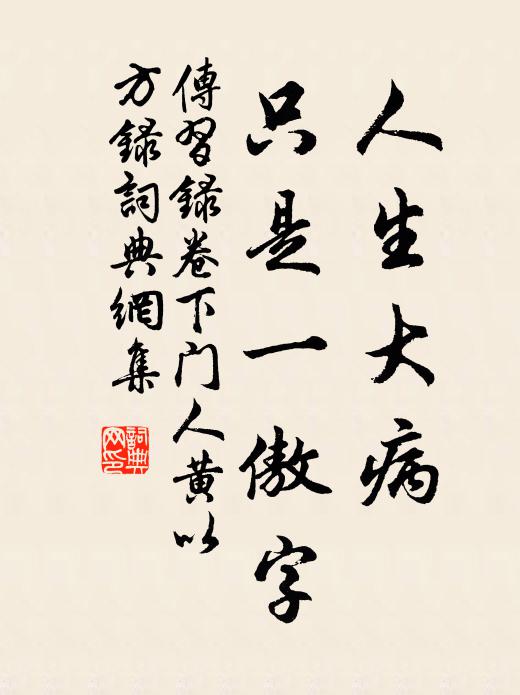 人生大病
只是一傲字
傳習録卷下门人黄以
方録詞典網集
詞典
网印